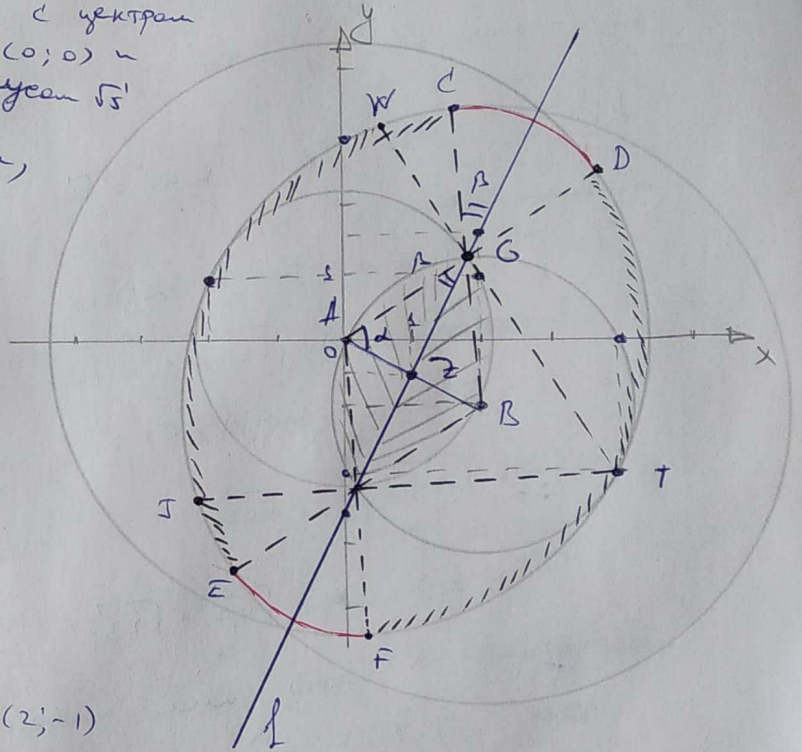 с центром
(0;0) и
усом √5
y
W
C
D
β
G
β
1
A
α
0
x
Z
B
J
T
E
F
(2;-1)
l